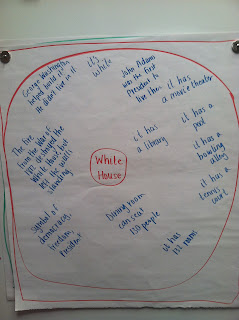 George Washington
helped build it.
He didn't live in it
it's
white
John Adams
was the first
President to
live there
it has
a movie theater
it has a
pool
it has
a library
it has a
bowling
alley
The fire
from the War of
1812 destroyed the
White House but
left the walls
standing
White
House
it has a
tennis
court
symbol of
democracy,
freedom,
President
Dining room
can seat
130 people
it has
132 rooms